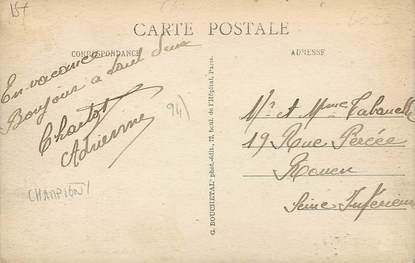 CARTE POSTALE
CORRESPONDANCE
ADRESSE
En vacances
Bonjour à tout deux
Charlot
Adrienne
94
CHAMPIGNY
G. BOUCHETAL phot.-édit., 75, boul. de l'Hôpital, Paris.
Mr et Mme
19 Rue Percée
Rouen
Seine Inférieure